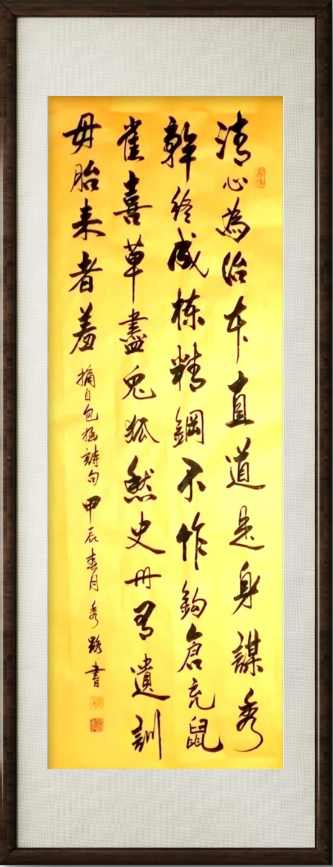 清心為治本直道是身謀秀
幹終成栋精鋼不作鈎倉充鼠
雀喜草盡兔狐愁史册有遺訓
毋胎来者羞 摘自包拯詩句 甲辰春月 秀路書